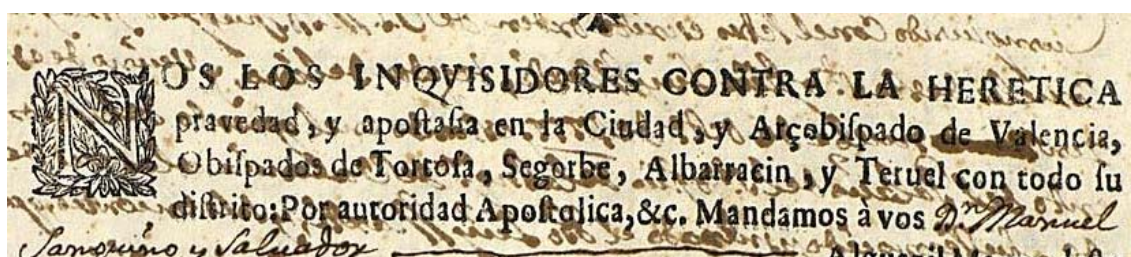 NOS LOS INQVISIDORES CONTRA LA HERETICA
pravedad, y apoſtaſia en la Ciudad, y Arçobiſpado de Valencia,
Obiſpados de Tortoſa, Segorbe, Albarracin, y Teruel con todo ſu
diſtrito: Por autoridad Apoſtolica, &c. Mandamos à vos Dn. Manuel
y Salvador